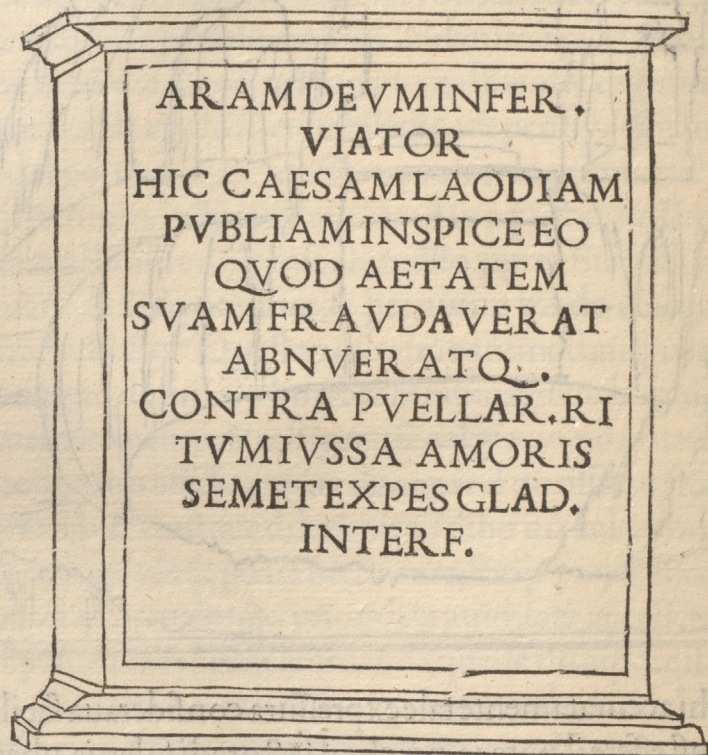 ARAMDEVMINFER.
VIATOR
HIC CAESAMLAODIAM
PVBLIAMINSPICEEO
QVOD AETATEM
SVAMFRAVDAVERAT
ABNVERATQ.
CONTRA PVELLAR.RI
TVMIVSSA AMORIS
SEMETEXPESGLAD.
INTERF.